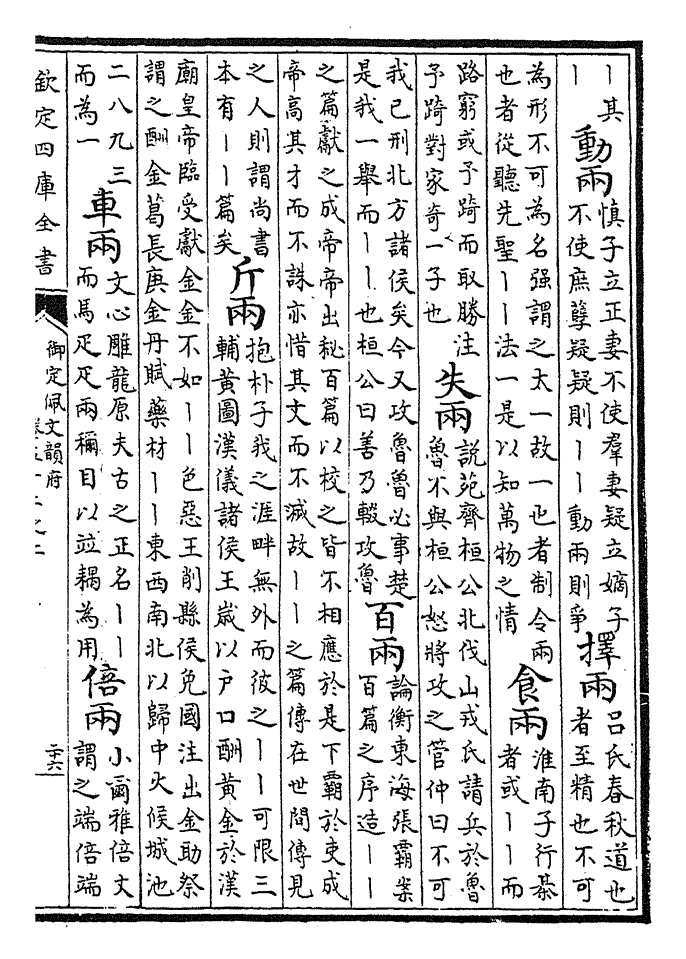 丨其
丨
動兩
慎子立正妻不使羣妻疑立嫡子
不使庶孽疑疑則丨丨動兩則爭
擇兩
呂氏春秋道也
者至精也不可
為形不可為名强謂之太一故一也者制令兩
也者從聽先聖丨丨法一是以知萬物之情
食兩
淮南子行棊
者或丨丨而
路窮或予踦而取勝注
予踦對家奇一子也
失兩
說苑齊桓公北伐山戎氏請兵於魯
魯不與桓公怒將攻之管仲曰不可
我已刑北方諸侯矣今又攻魯魯必事楚
是我一舉而丨丨也桓公曰善乃輟攻魯
百兩
論衡東海張霸案
百篇之序造丨丨
之篇獻之成帝帝出秘百篇以校之皆不相應於是下霸於吏成
帝高其才而不誅亦惜其文而不滅故丨丨之篇傳在世間傳見
之人則謂尚書
本有丨丨篇矣
斤兩
抱朴子我之涯畔無外而彼之丨丨可限三
輔黃圖漢儀諸侯王嵗以户口酬黃金於漢
廟皇帝臨受獻金金不如丨丨色惡王削縣侯免國注出金助祭
謂之酬金葛長庚金丹賦藥材丨丨東西南北以歸中火候城池
二八九三
而為一
車兩
文心雕龍原夫古之正名丨丨
而馬疋疋兩稱目以竝耦為用
倍兩
小爾雅倍丈
謂之端倍端
欽定四庫全書
御定佩文韻府
二十六